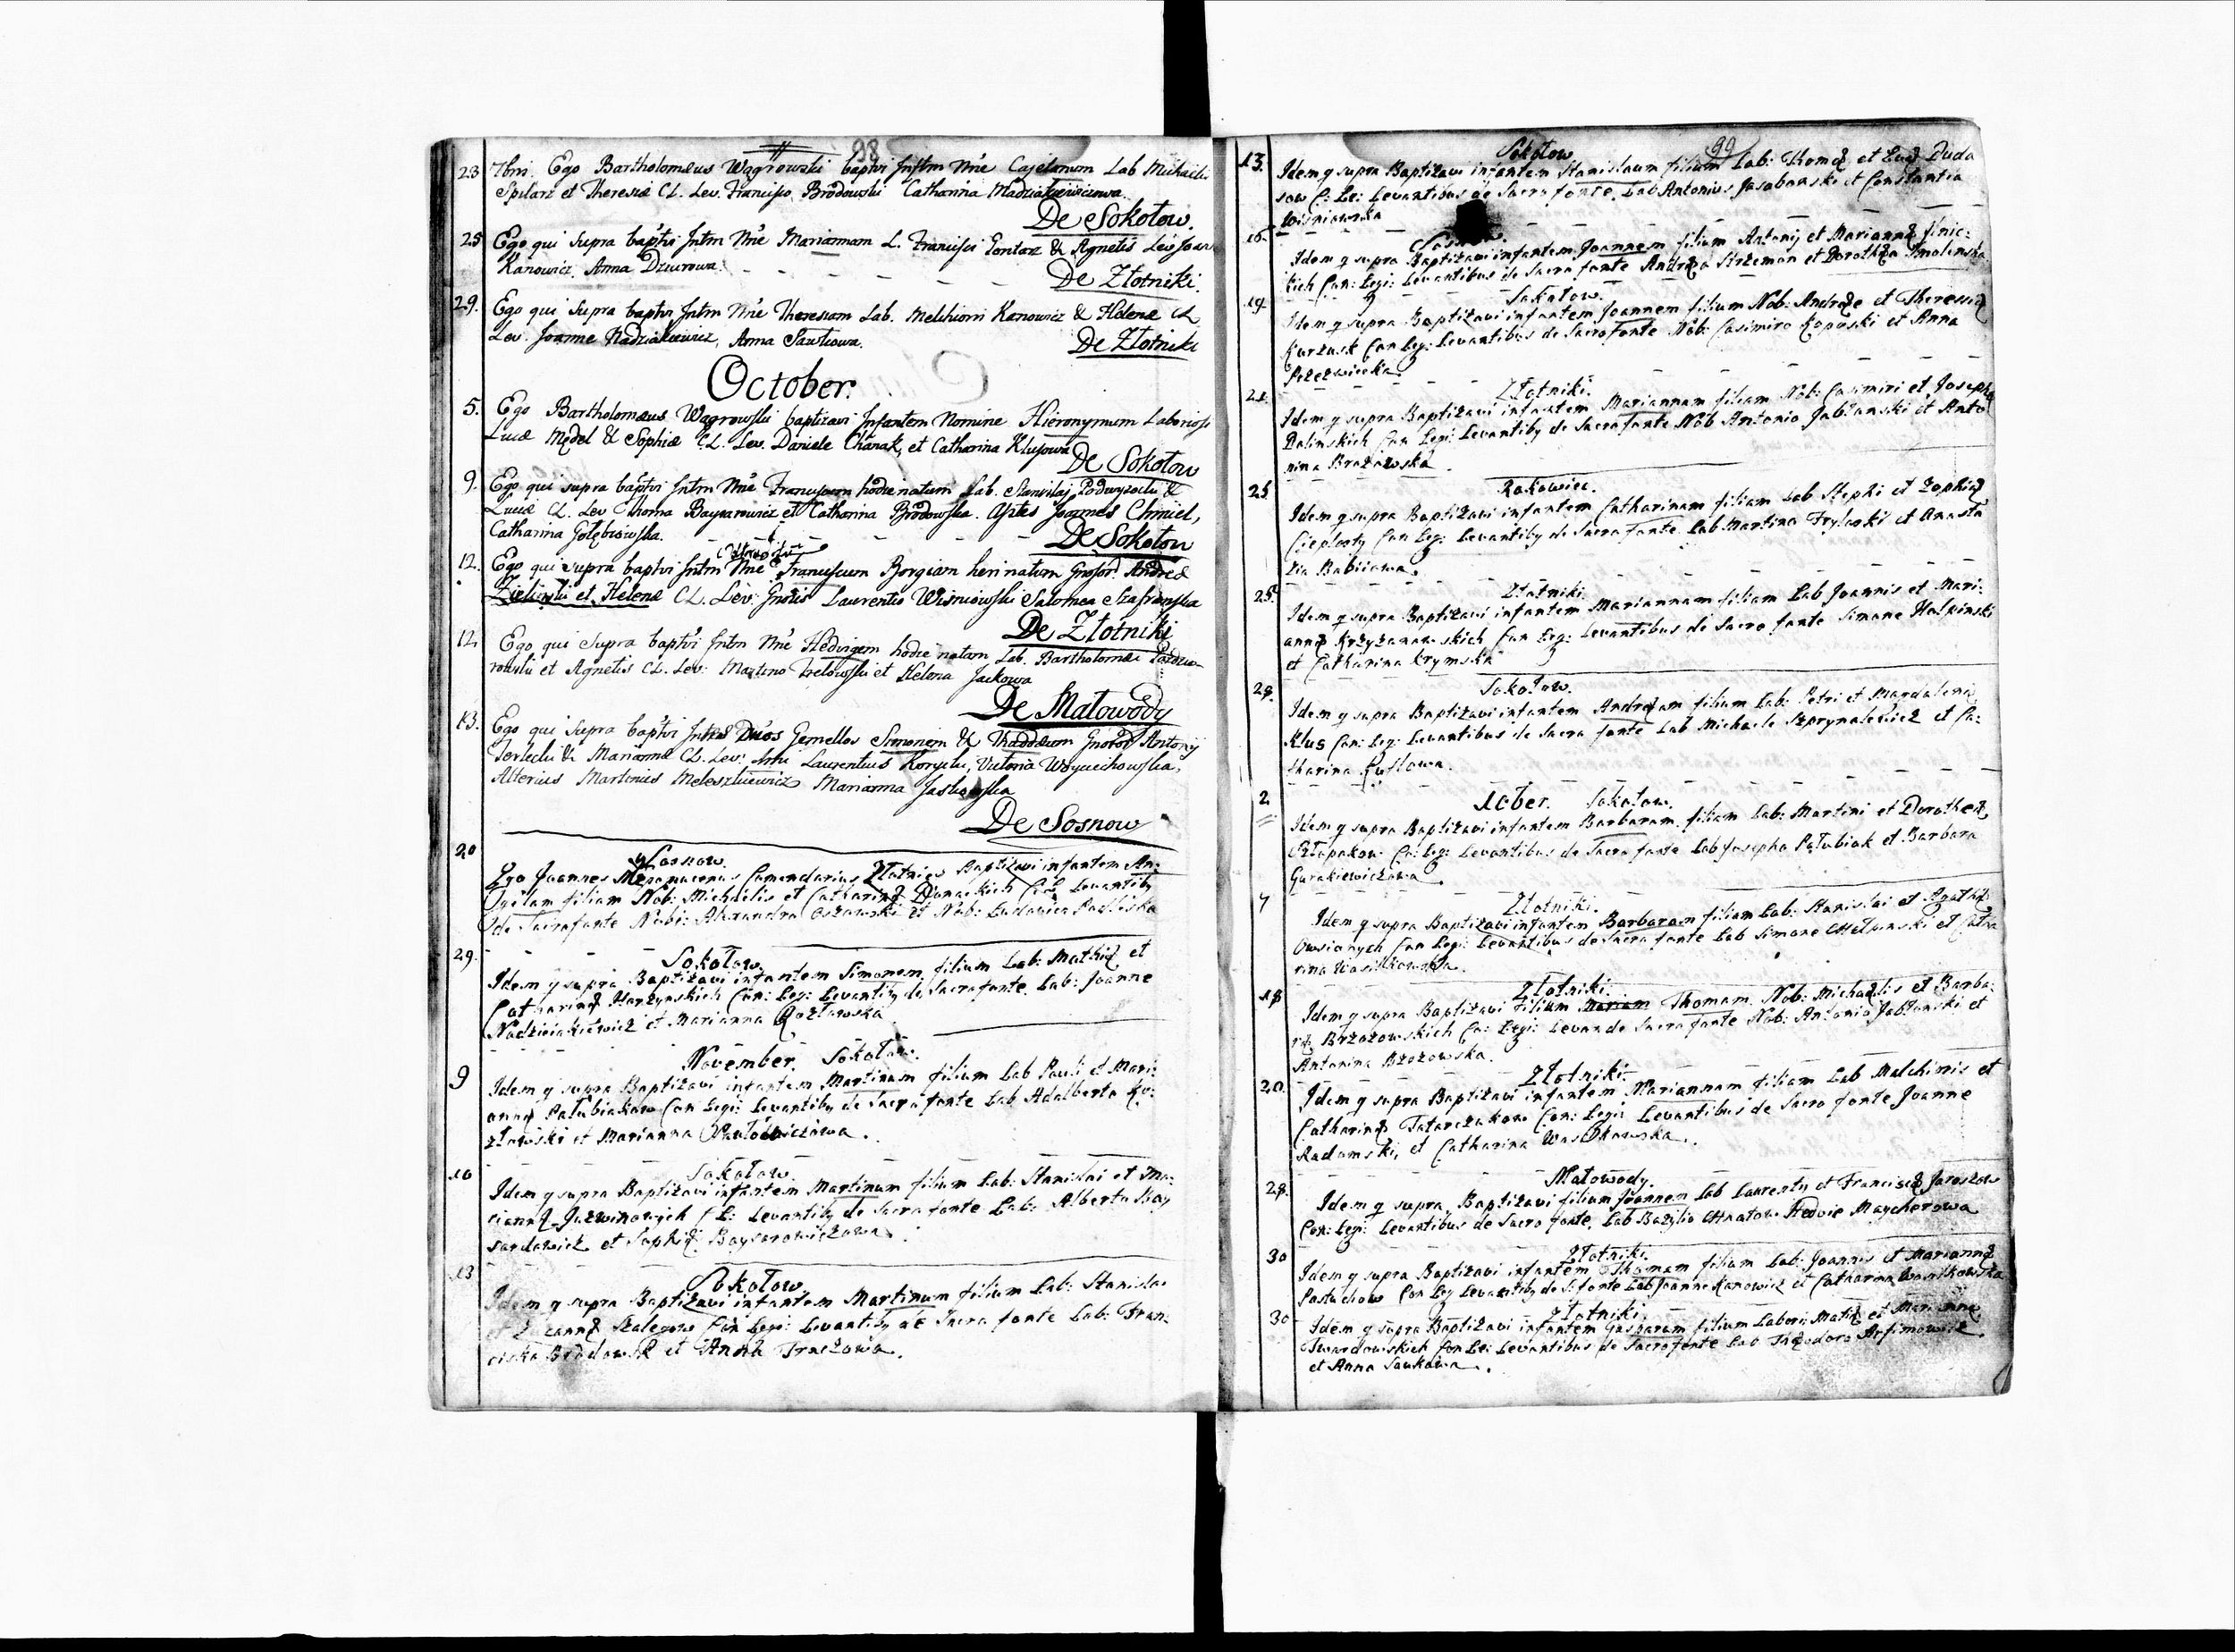 98
23 7bri. Ego Bartholomæus Wągrowski baptvi Inftm Nne Cajetanum Lab Michaeli
Spilarz et Theresiæ CL. Lev. Francisco Brodowski Catharina Madziakiewiczowa
De Sokołow.
25 Ego qui supra baptvi Intm Nne Mariannam L. Francisci Gontarz & Agnetis Lev Joan
Kanowicz, Anna Dziurowa.
De Złotniki.
29. Ego qui supra baptvi Intm Nne Theresiam Lab. Melchiori Kanowicz & Helenæ CL
Lev. Joanne Nadziakiewicz, Anna Sawkowa.
De Złotniki
October.
5. Ego Bartholomæus Wągrowski baptizavi Infantem Nomine Hieronymum Laboriosi
Lucæ Mędel & Sophiæ C.L. Lev. Daniele Chanak, et Catharina Klusowa
De Sokołow
9. Ego qui supra baptvi Intm Nne Franciscum hodie natum Lab. Stanislaj Podwysocki &
Luciæ CL. Lev Thoma Baysarowicz et Catharina Brodowska. Astes Joannes Chmiel,
Catharina Gołębiowska.
De Sokołow
12. Ego qui supra baptvi Intm Nne Franciscum Borgiam heri natum Gnosor. Andreæ
Zielinski et Helenæ CL. Lev: Gnosis Laurentio Wisniowski Salomea Szafranska
De Złotniki
12. Ego qui supra baptvi Intm Nne Hedvigem hodie natam Lab. Bartholomæi
rowski et Agnetis CL. Lev: Martino Trelowski et Helena Jackowa
De Małowody
13. Ego qui supra baptvi Intes Duos Gemellos Simonem & Thaddæum Gnosor Antonij
Terlecki & Mariannæ CL. Lev: Laurentius Korycki, Victoria Woyciechowska,
Alterius Martinus Meleszkiewicz Marianna Jaskowska
De Sosnow
20 Sosnow
Ego Joannes Nepomucenus Comendarius Złotnicv Baptizavi infantem An-
gelam filiam Nob: Michaelis et Catharinę C: L: Levantibq
de Sacro fonte Nobi: Alexandro et Nob: Ludovica
29. Sokołow
Idem q supra Baptizavi infantem Simonem filium Lab: Mathię et
Catharinę Harzynskich Con: Leg: Levantibq de Sacro fonte. Lab: Joanne
Nadzieiakiewicz et Marianna Kozłowska
November. Sokołow.
9 Idem q supra Baptizavi infantem Martinum filium Lab Pauli et Mari:
annę Pałubiakow Con Legi: Levantibq de Sacro fonte Lab Adalberto Ko:
złowski et Marianna Pawłowiczowa.
10 Sokołow.
Idem q supra Baptizavi infantem Martinum filium Lab: Stanislai et Ma:
riannę Juzwinowych C L: Levantibq de Sacro fonte Lab: Alberto Bay
sarowicz et Sophia Baysarowiczowa.
13 Sokołow
Idem q supra Baptizavi infantem Martinum filium Lab: Stanislai
et Szalegow Con Legi: Levantibq de Sacro fonte Lab: Fran:
cisko Brodowsk et Anna Traczowa.
99
13. Sokołow
Idem q supra Baptizavi infantem Stanislaum filium Lab: Thomę et Evę Duda
sow C: Le: Levantibus de Sacro fonte, Lab Antonius et Constantia
Wisniowska
16. Sosnow.
Idem q supra Baptizavi infantem Joannem filium Antonij et Mariannę Sinic:
kich Con: Legi: Levantibus de Sacro fonte Andrea Strzemon et Dorothea Smolinska
19. Sokołow.
Idem q supra Baptizavi infantem Joannem filium Nob: Andreę et Theresię
Con Leg: Levantibus de Sacro fonte Nob: Casimiro et Anna
21. Złotniki
Idem q supra Baptizavi infantem Mariannam filiam Nob: Casimiri et Josephę
Con Legi: Levantibq de Sacro fonte Nob Antonio Jabłonski et Anto
nina Brzozowska.
25. Rakowiec.
Idem q supra Baptizavi infantem Catharinam filiam Lab Stephi et Zophię
Ciepłoty Con Leg: Levantibq de Sacro fonte Lab Martino Tryloski et Anasta
zia Babiiowa.
25. Złotniki
Idem q supra Baptizavi infantem Mariannam filiam Lab Joannis et Mari:
annę Krzyżanowskich Con Leg: Levantibus de Sacro fonte Simone Halpinski
et Catharina Krymska
28. Sokołow.
Idem q supra Baptizavi infantem Andream filium Lab: Petri et Magdalenę
Klus Con: Leg: Levantibus de Sacro fonte Lab Michaele et Ca:
tharina Kusłowa.
2 Xcber. Sokołow.
Idem q supra Baptizavi infantem Barbaram filiam Lab: Martini et Dorotheę
Człapakow Co: Leg: Levantibus de Sacro fonte Lab Josepho Pałubiak et Barbara
Gurakiewiczowa
7 Złotniki.
Idem q supra Baptizavi infantem Barbaram filiam Lab: Stanislai et Agathę
Owsianych Con Legi: Levantibus de Sacro fonte Lab Simone et Catha
rina Wasilkowska.
18 Złotniki.
Idem q supra Baptizavi filium Mariam Thomam. Nob: Michaelis et Barba:
rę Brzozowskich Co: Legi: Levan de Sacro fonte Nob: Antonio Jabłonski et
Antonina Brzozowska.
20. Złotniki
Idem q supra Baptizavi infantem Mariannam filiam Lab Malchioris et
Catharinę Tatarczakow Con: Legi: Levantibus de Sacro fonte Joanne
Radomski, et Catharina Wasilkowska.
28. Małowody.
Idem q supra Baptizavi filium Joannem Lab Laurentij et Franciscę Jaroszow
Con: Legi: Levantibus de Sacro fonte, Lab Bazylio Hedvie Maycherowa
30 Złotniki
Idem q supra Baptizavi infantem Thomam filium Lab: Joannis et Mariannę
Pastuchow Con Leg Levantibq de S. fonte Lab Joanne Kanowicz et Catharina Wasilkowska
30 Złotniki
Idem q supra Baptizavi infantem Gasparem filium Labori Matię et Mariannę
Twardowskich Con Le: Levantibus de Sacro fonte Lab Theodoro Arfimowicz.
et Anna Sawkowa.